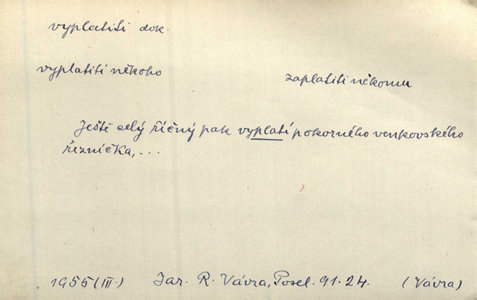 vyplatiti dok.
vyplatiti někoho
zaplatiti někomu
Ještě celý říčný pak vyplatí pokorného venkovského
řezníčka, ...
1955 (III.) Jar. R. Vávra, Posel. 91.24. (Vávra)